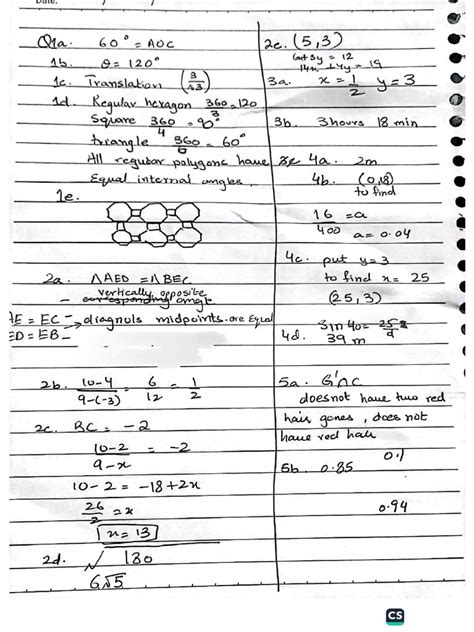 Q1a. 60° = AOC
1b. θ = 120°
1c. Translation (3 13)
1d. Regular hexagon 360/3 = 120
Square 360/4 = 90°
triangle 360/6 = 60°
All regular polygons have
Equal internal angles.
1e.
2a. ΛAED = ΛBEC
vertically opposite
corresponding angle
AE = EC - diagnols midpoints are Equal
ED = EB -
2b. 10-4/9-(-3) = 6/12 = 1/2
2c. BC = -2
10-2/9-x = -2
10-2 = -18+2x
26/2 = x
x = 13
2d. √180
6√5
2e. (5,3)
6x+3y = 12
14x + 4y = 19
3a. x = 1/2 y = 3
3b. 3 hours 18 min
4a. 2m
4b. (0,18)
to find
16/400 = a
a = 0.04
4c. put y = 3
to find x = 25
(25,3)
4d. 39 m
5a. G'∩C
doesnot have two red
hair genes, does not
have red hair
0.1
5b. 0.85
0.94
CS